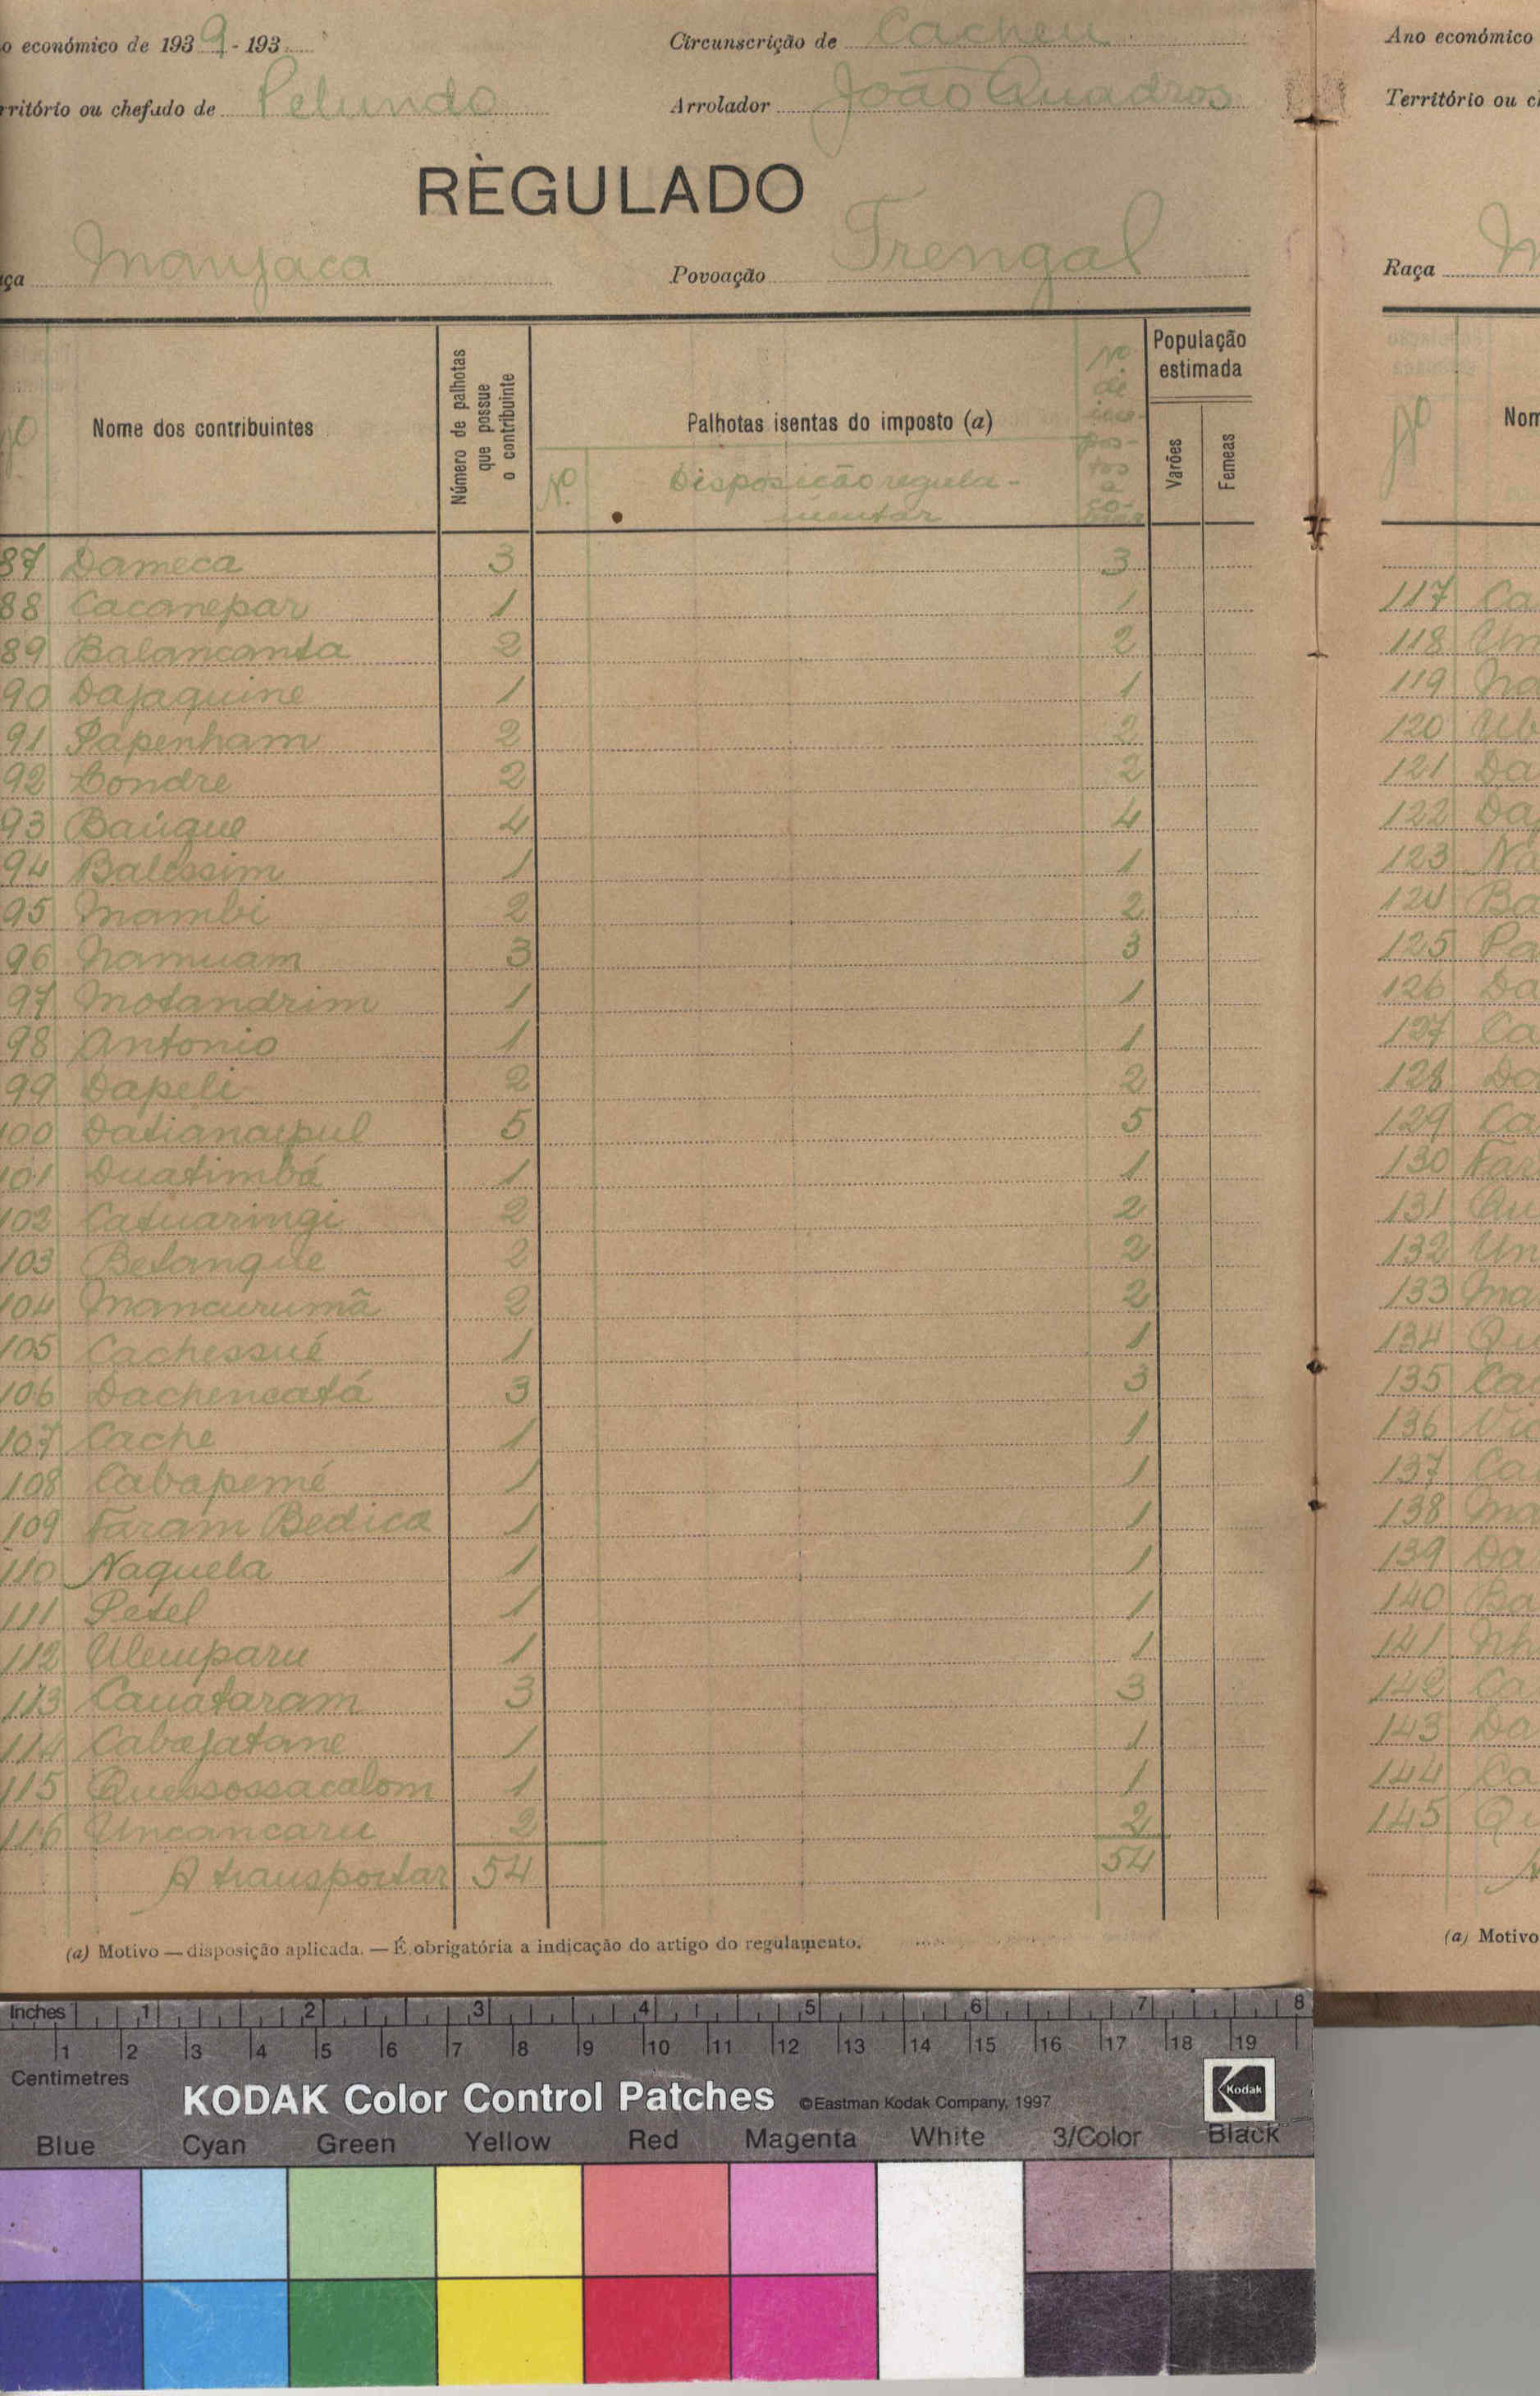 o económico de 1939-193
Circunscrição de Cacheu
rritório ou chefado de Pelundo
Arrolador João Quadros
REGULADO
ça Manjaca
Povoação Trengal
Nº Nome dos contribuintes
Número de palhotas que possue o contribuinte
Palhotas isentas do imposto (a)
Nº Disposição regula-
mentar
Nº de impostos a
População estimada
Varões
Femeas
87 Dameca 3 3
88 Cacanepar 1 1
89 Balancanta 2 2
90 Dajaquine 1 1
91 Papenham 2 2
92 Bondre 2 2
93 Baúque 4 4
94 Balessim 1 1
95 Mambi 2 2
96 Namuam 3 3
97 Motandrim 1 1
98 Antonio 1 1
99 Dapeli 2 2
100 5 5
101 Duatimbá 1 1
102 Catuaringi 2 2
103 Betanque 2 2
104 Mancurumã 2 2
105 Cachessué 1 1
106 Dachencatá 3 3
107 Cache 1 1
108 Cabapemé 1 1
109 Faram Bedica 1 1
110 Naquela 1 1
111 Petel 1 1
112 Ulemparu 1 1
113 Cauataram 3 3
114 Cabajatane 1 1
115 Quessossacalom 1 1
116 Uncancaru 2 2
A transportar 54 54
(a) Motivo — disposição aplicada. — É obrigatória a indicação do artigo do regulamento.
Ano económico
Território ou c
Raça M
Nº Nom
117 Ca
118 Un
119 Na
120 Ub
121 Da
122 Da
123 Na
124 Ba
125 Pa
126 Da
127 Ca
128 Da
129 Ca
130 Far
131 Qu
132 Un
133 Ma
134 Qu
135 Ca
136
137 Ca
138 Ma
139 Da
140 Ba
141 Nh
142 Ca
143 Da
144 Ca
145 Qu
A
(a) Motivo
Inches 1 2 3 4 5 6 7 8
1 2 3 4 5 6 7 8 9 10 11 12 13 14 15 16 17 18 19
Centimetres
KODAK Color Control Patches ©Eastman Kodak Company, 1997
Kodak
Blue Cyan Green Yellow Red Magenta White 3/Color Black